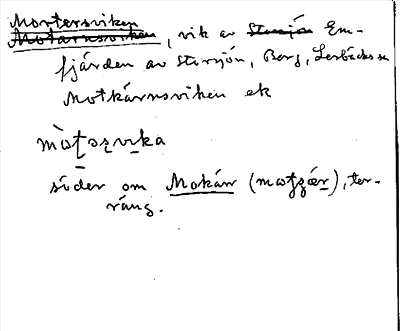 Mortersviken
Motarnsviken, vik av Storsjön Em-
fjärden av Storsjön, Berg, Lerbäcks sn
Motkärnsviken ek
söder om Mokärr ter-
räng.